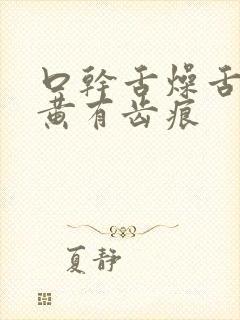 口幹舌燥舌
黄有齿痕
夏静